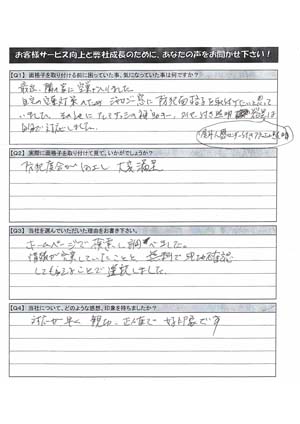 お客様サービス向上と弊社成長のために、あなたの声をお聞かせ下さい！
【Q1】面格子を取り付ける前に困っていた事、気になっていた事は何ですか？
最近、隣の家に空巣が入りました。
自宅の空巣対策のため ジャロジー窓に 防犯面格子を取付けたいと思って
いました。
自分で対応しました。
【Q2】実際に面格子を取り付けて見て、いかがでしょうか？
防犯度合が向上し 大変満足
【Q3】当社を選んでいただいた理由をお書き下さい。
ホームページで検索し調べました。
情報が充実していたことと 無料で現地確認
してもらえることで選択しました。
【Q4】当社について、どのような感想、印象を持ちましたか？
対応が早く 親切、正確で 好印象です